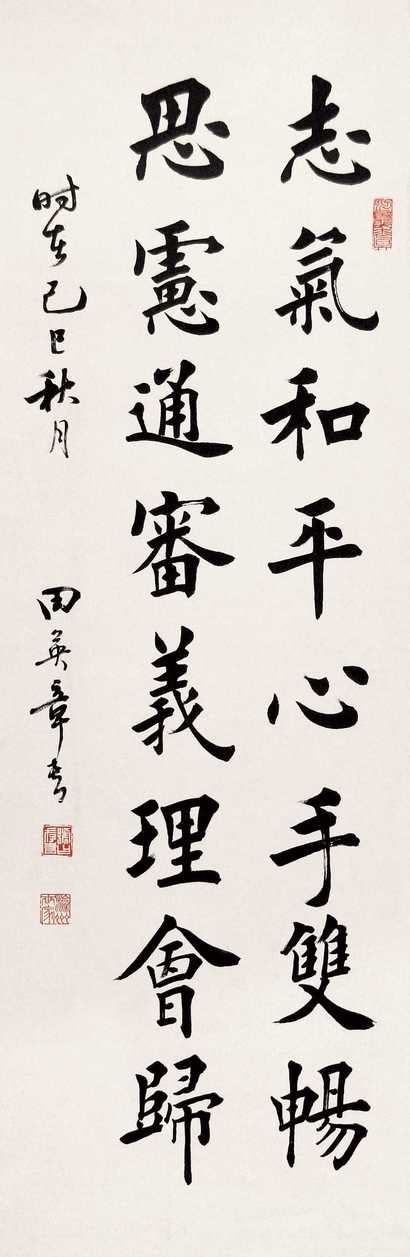 志氣和平心手雙暢
思慮通審義理會歸
时在己巳秋月
田英章书